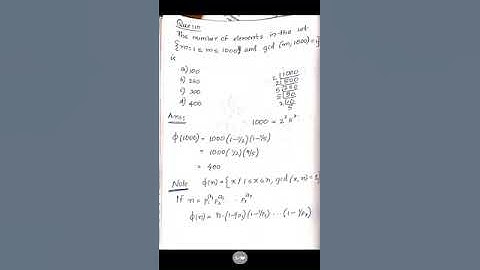 Question
The number of elements in the set
{m: 1 ≤ m ≤ 1000 and gcd (m, 1000) = 1}
is
a) 100
b) 250
c) 300
d) 400
2 | 1000
2 | 500
5 | 250
5 | 50
2 | 10
5
Ans:
1000 = 2³ 5³
φ(1000) = 1000 (1-1/2) (1-1/5)
= 1000 (1/2) (4/5)
= 400
Note
φ(n) = { x / 1 ≤ x ≤ n, gcd (x, n) = 1
If n = p₁^a₁ p₂^a₂ ... 
φ(n) = n (1-1/p₁) (1-1/p₂) ... (1-